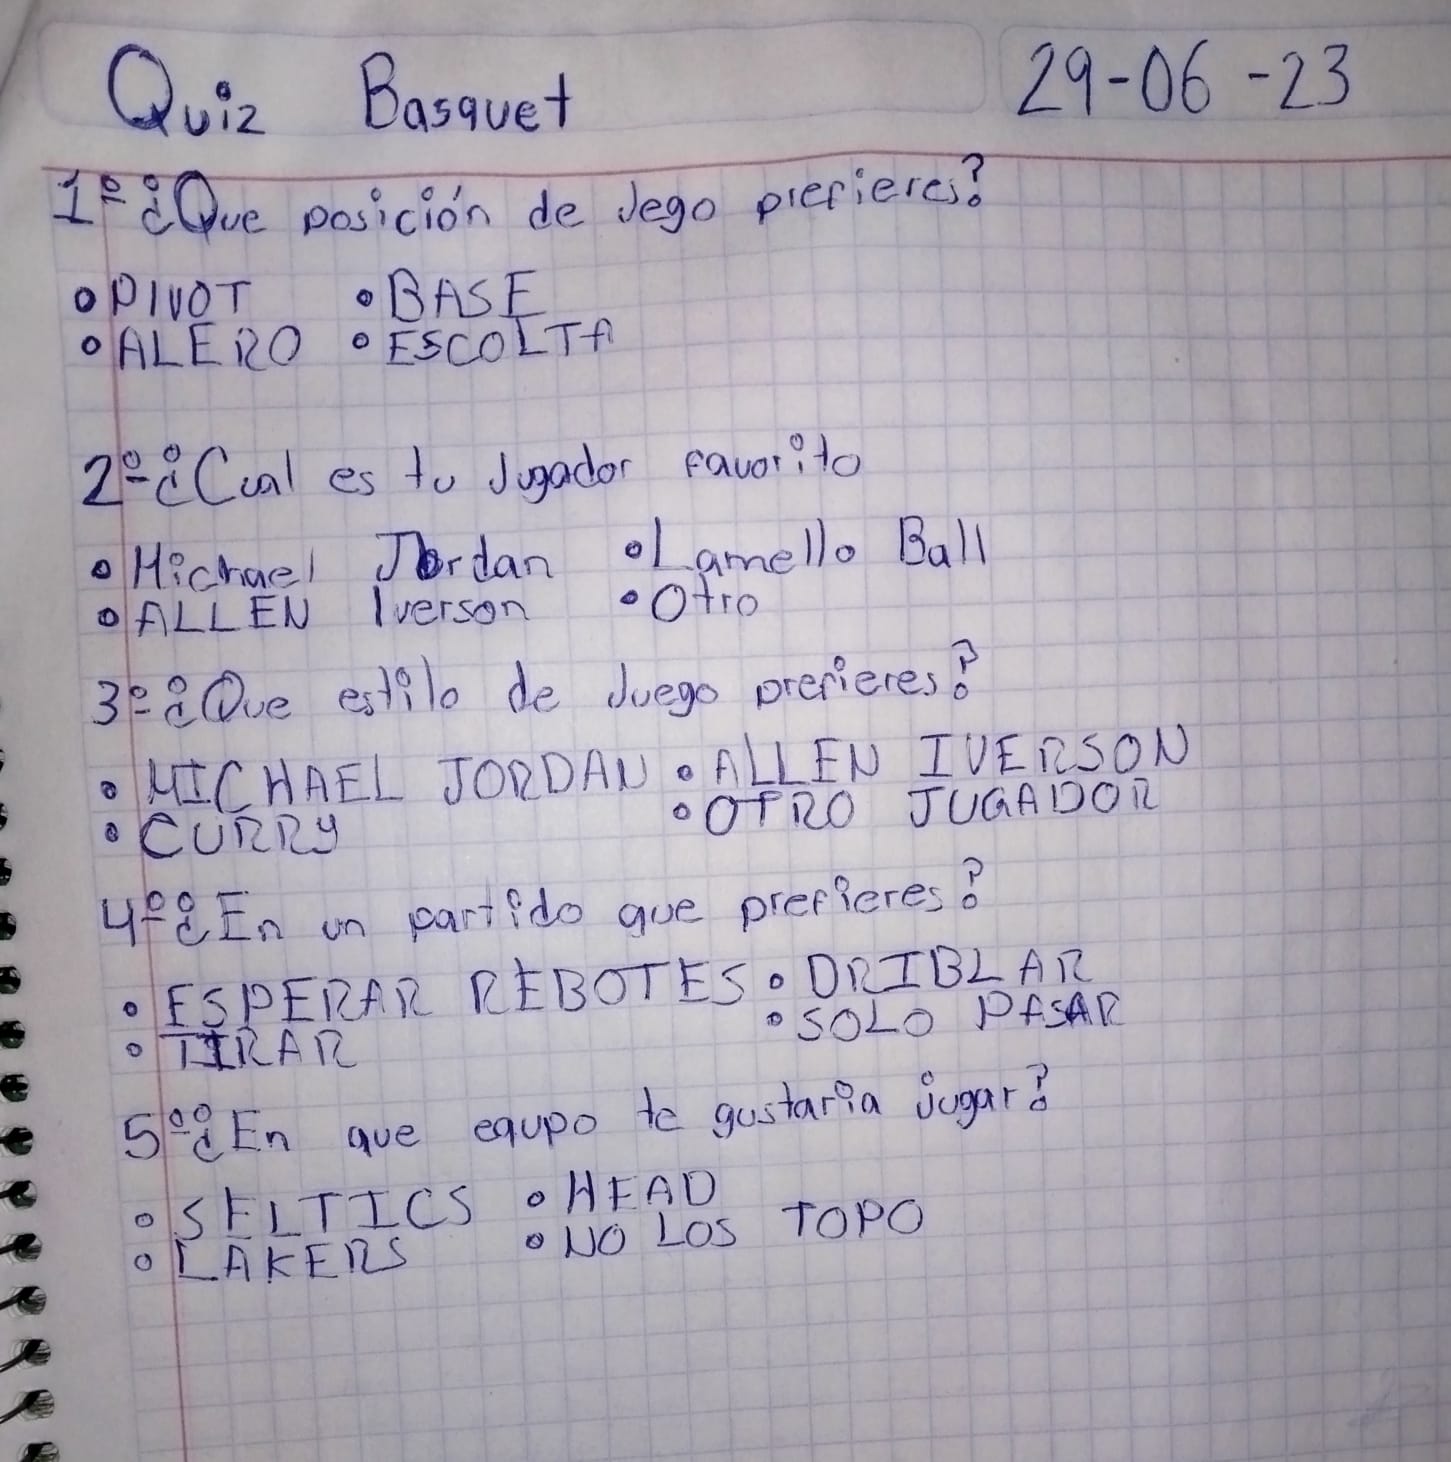 Quiz Basquet 29-06-23
1º ¿Que posición de Jego prefieres?
• PIVOT • BASE
• ALERO • ESCOLTA
2º ¿Cual es tu Jugador favorito
• Michael Jordan • Lamello Ball
• ALLEN Iverson • Otro
3º ¿Que estilo de Juego prefieres?
• MICHAEL JORDAN • ALLEN IVERSON
• CURRY • OTRO JUGADOR
4º ¿En un partido que prefieres?
• ESPERAR REBOTES • DRIBLAR
• TIRAR • SOLO PASAR
5º ¿En que equpo te gustaria jugar?
• SELTICS • HEAD
• LAKERS • NO LOS TOPO